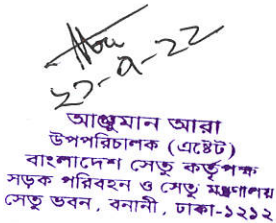 ২১-৭-২২
আঞ্জুমান আরা
উপপরিচালক (এস্টেট)
বাংলাদেশ সেতু কর্তৃপক্ষ
সড়ক পরিবহন ও সেতু মন্ত্রণালয়
সেতু ভবন, বনানী, ঢাকা-১২১২